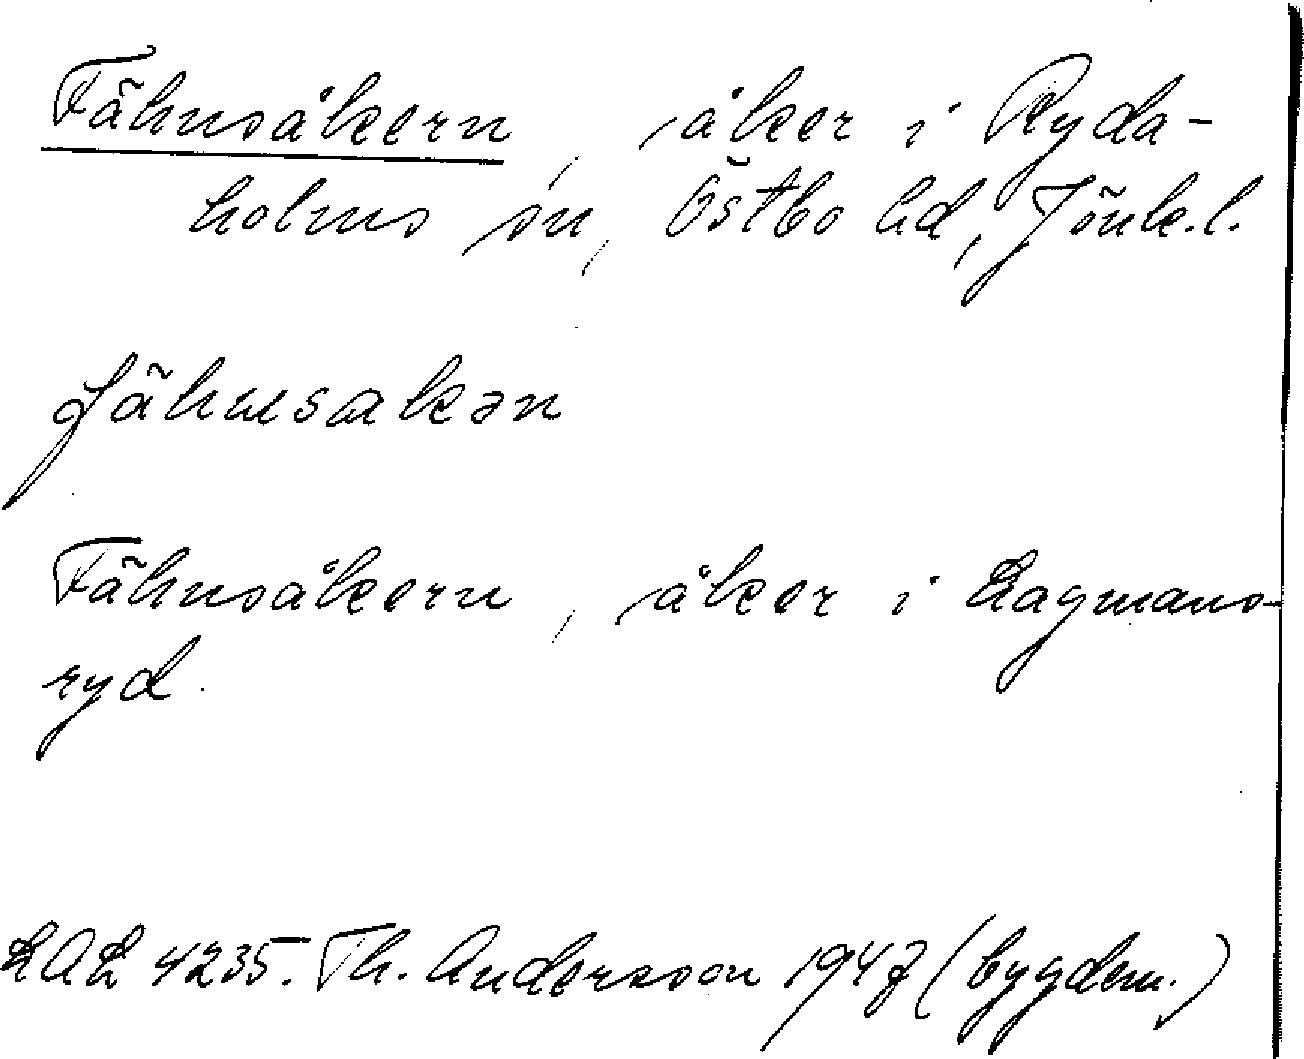 Fähusåkern, åker i Ryda-
holms sn, Östbo hd, Jönk.l.
fähusakən
Fähusåkern, åker i Lagmans-
ryd.
LAL 4235. Th. Andersson 1947 (bygdem.)